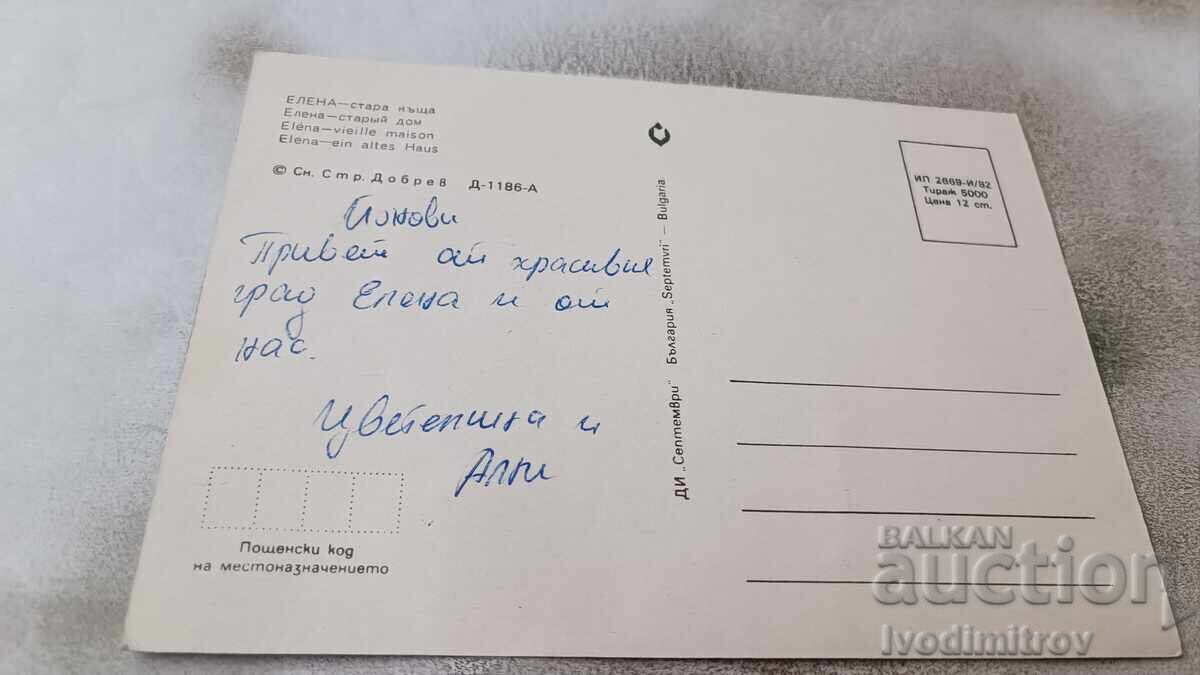 ЕЛЕНА—стара къща
Елена—старый дом
Eléna—vieille maison
Elena—ein altes Haus
© Сн. Стр. Добрев Д-1186-А
Привет от красивия
град Елена и от
нас.
и
Пощенски код
на местоназначението
ДИ „Септември“ България „Septemvri“ — Bulgaria
ИП 2669-И/82
Тираж 5000
Цена 12 ст.
BALKAN
auction
Ivodimitrov